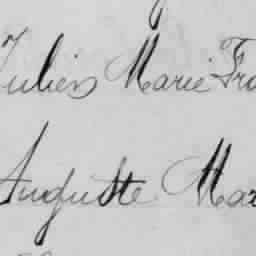 Julien Marie Fra
Auguste Mar